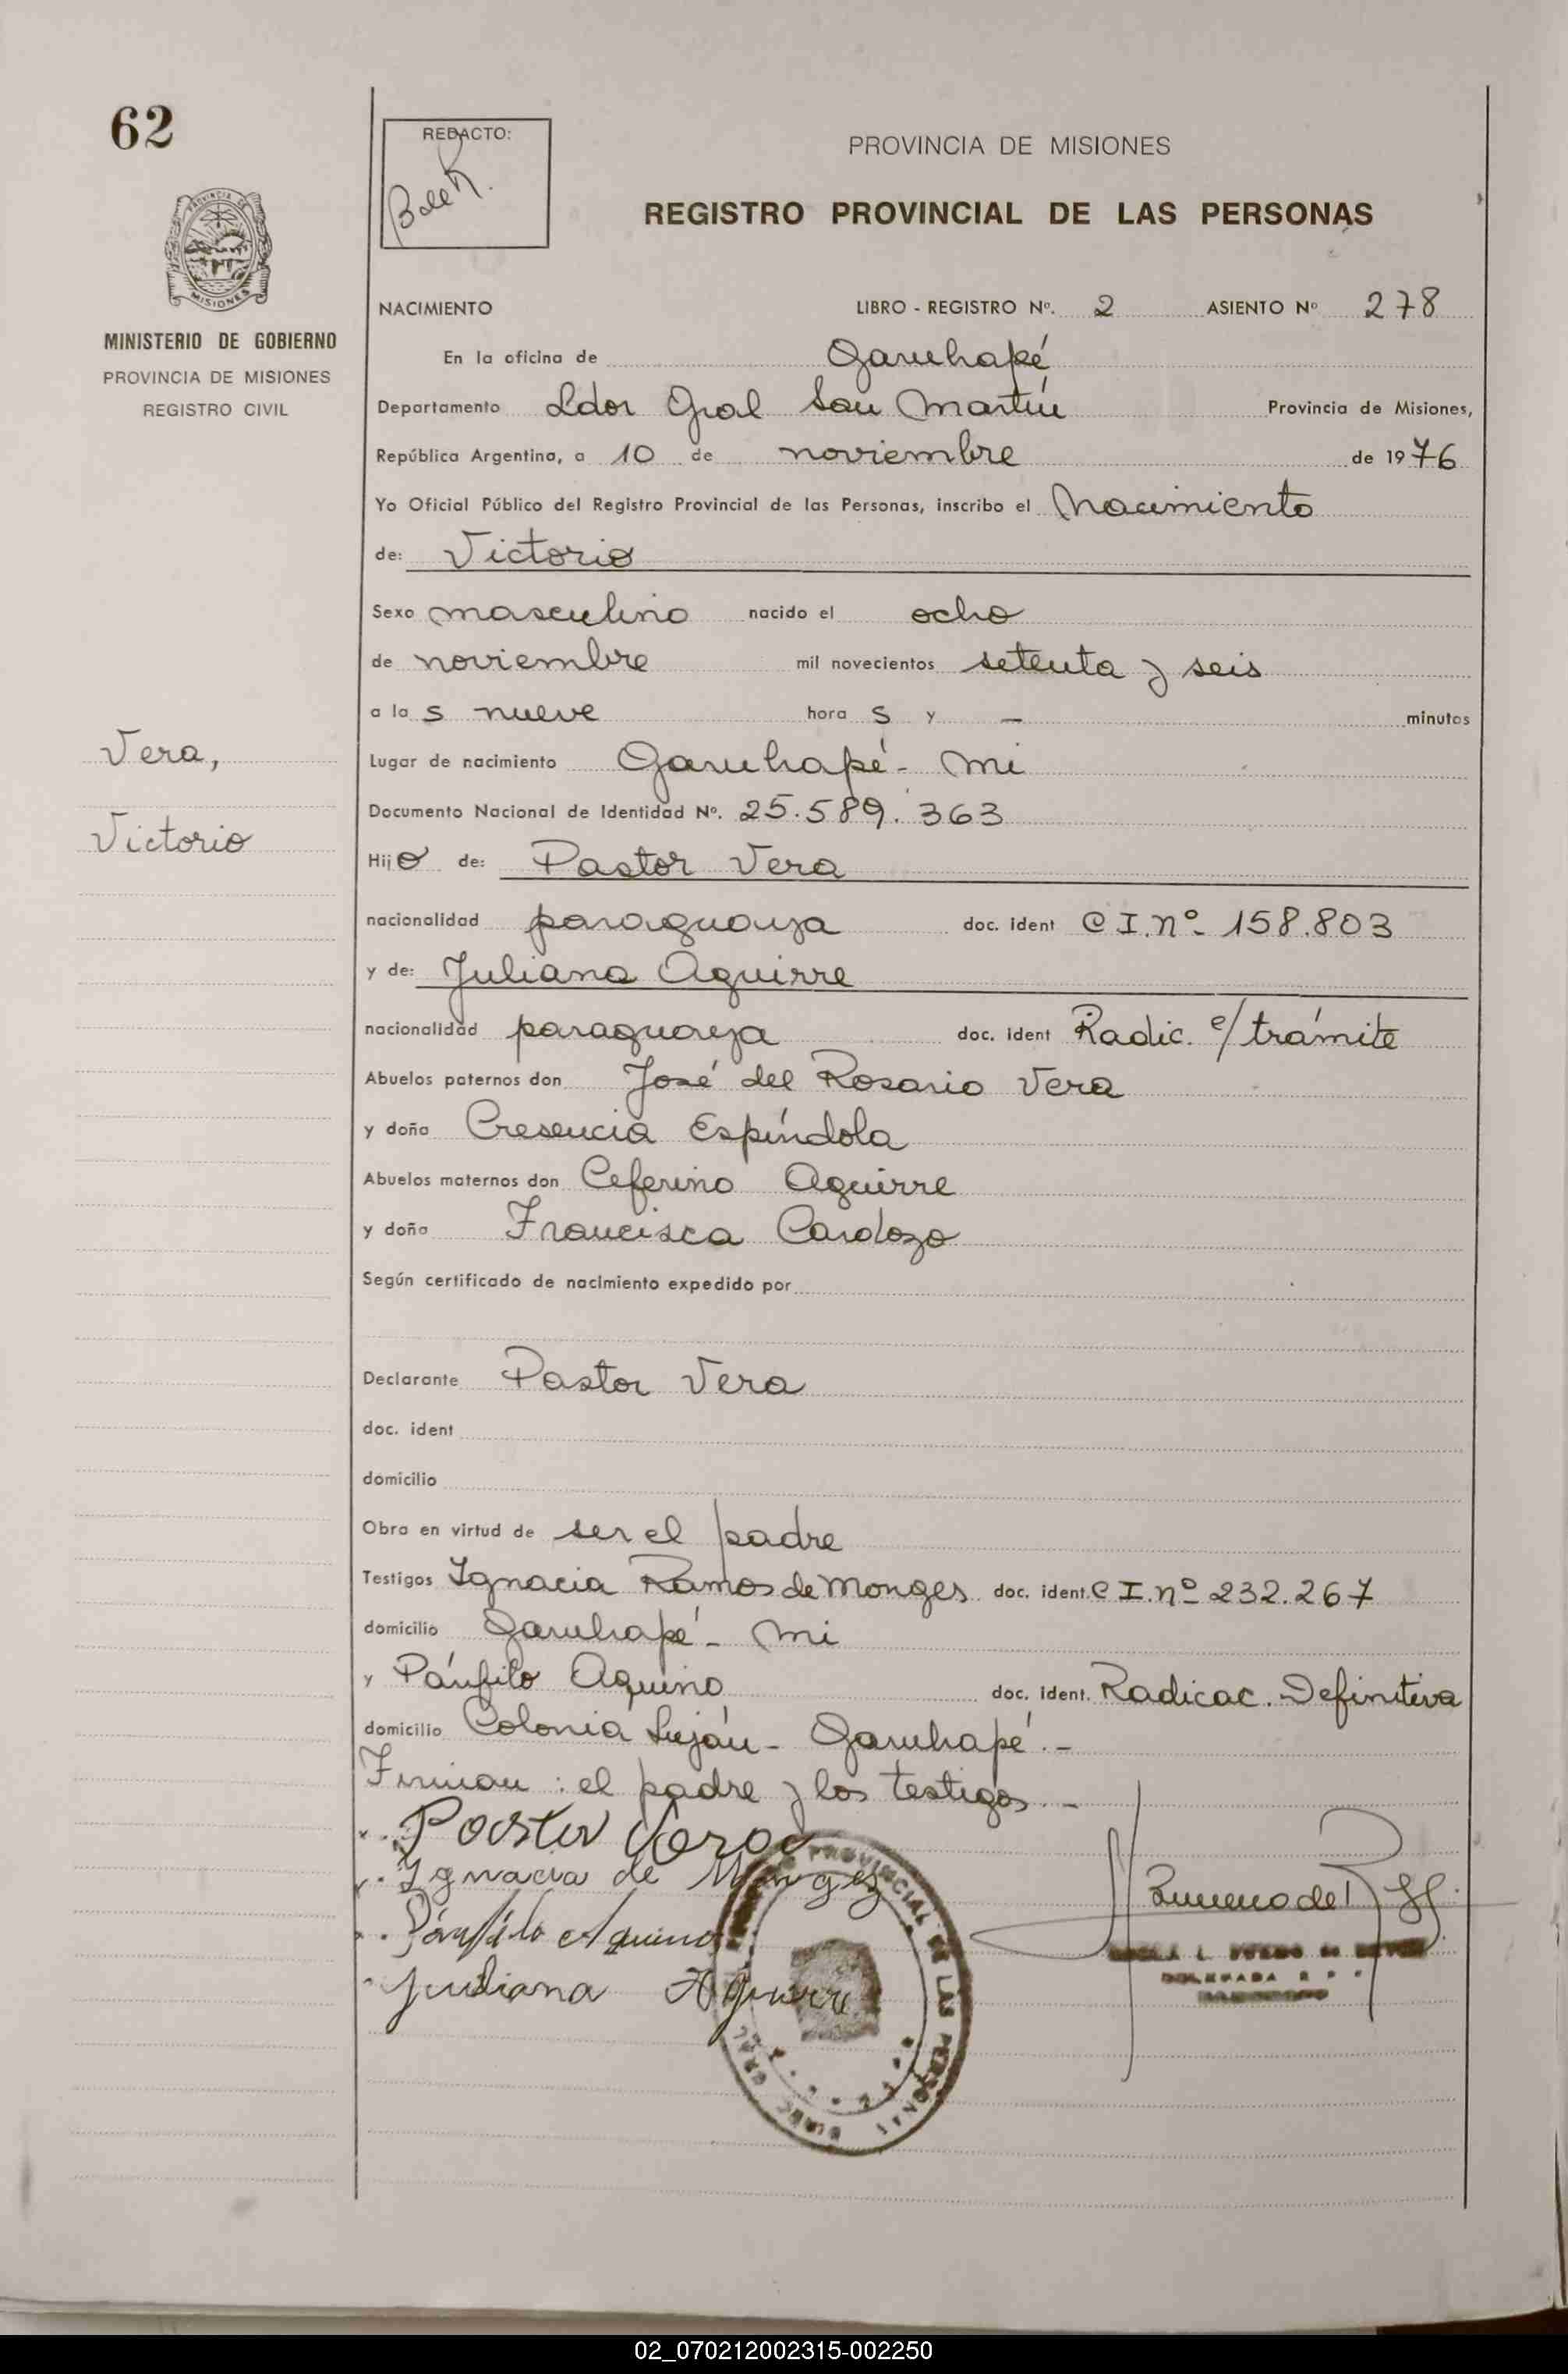 62
REDACTO:
PROVINCIA DE MISIONES
REGISTRO PROVINCIAL DE LAS PERSONAS
PROVINCIA DE
MISIONES
MINISTERIO DE GOBIERNO
PROVINCIA DE MISIONES
REGISTRO CIVIL
NACIMIENTO LIBRO - REGISTRO Nº. 2 ASIENTO Nº 278
En la oficina de Garuhapé
Departamento Ldor Gral San Martín Provincia de Misiones,
República Argentina, a 10 de noviembre de 1976
Yo Oficial Público del Registro Provincial de las Personas, inscribo el Nacimiento
de: Victorio
Sexo masculino nacido el ocho
de noviembre mil novecientos setenta y seis
a la s nueve hora s y — minutos
Vera,
Victorio
Lugar de nacimiento Garuhapé - Mi
Documento Nacional de Identidad Nº. 25.589.363
Hijo de: Pastor Vera
nacionalidad paraguaya doc. ident C I. nº - 158.803
y de: Juliana Aguirre
nacionalidad paraguaya doc. ident Radic. e/ trámite
Abuelos paternos don José del Rosario Vera
y doña Cresencia Espíndola
Abuelos maternos don Ceferino Aguirre
y doña Francisca Cardozo
Según certificado de nacimiento expedido por
Declarante Pastor Vera
doc. ident
domicilio
Obra en virtud de ser el padre
Testigos Ignacia Ramos de Monges doc. ident. C I. nº 232.267
domicilio Garuhapé - Mi
y Pánfilo Aquino doc. ident. Radicac. Definitiva
domicilio Colonia Luján - Garuhapé. -
Firman: el padre y los testigos. -
Pastor Vera
Ignacia de Monges
Pánfilo Aquino
Juliana Aguirre
PROVINCIAL DE LAS PERSONAS
DIREC. GRAL
DELEGADA
02_070212002315-002250